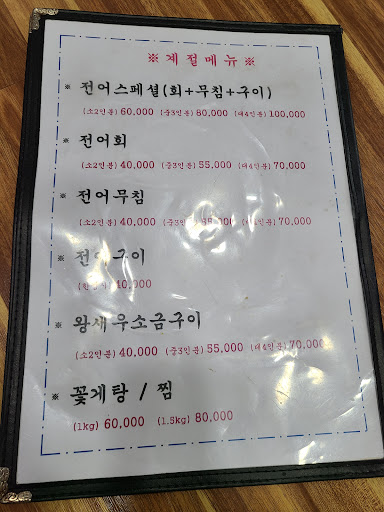 ※계절메뉴※
※ 전어스페셜(회+무침+구이)
(소2인분) 60,000 (중3인분) 80,000 (대4인분) 100,000
※ 전어회
(소2인분) 40,000 (중3인분) 55,000 (대4인분) 70,000
※ 전어무침
(소2인분) 40,000 70,000
※ 전어구이
※ 왕새우소금구이
(소2인분) 40,000 (중3인분) 55,000 (대4인분) 70,000
※ 꽃게탕 / 찜
(1kg) 60,000 (1.5kg) 80,000